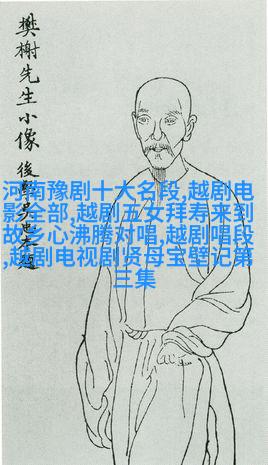 樊榭先生小像
後學吳
題
河南豫剧十大名段,越剧电
影全部,越剧五女拜寿来到
故乡心沸腾对唱,越剧唱段
,越剧电视剧贤母宝壁记第
三集